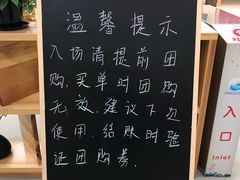 温馨提示
入场请提前团
购.买单时团购
无效.建议下次
使用.结账时验
证团购券.
入口
Inlet